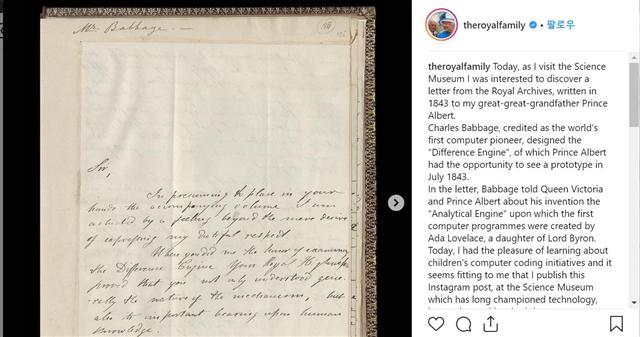 Mr. Babbage. —
Sir,
In presuming to place in your
hands the accompanying volume I am
actuated by a feeling beyond the mere desire
of expressing my dutiful respect
When you did me the honor of examining
the Difference Engine Your Royal Highness
proved that you not only understood gene-
rally the nature of the mechanism, but
also its important bearing upon human
knowledge.
theroyalfamily • 팔로우
theroyalfamily Today, as I visit the Science
Museum I was interested to discover a
letter from the Royal Archives, written in
1843 to my great-great-grandfather Prince
Albert.
Charles Babbage, credited as the world's
first computer pioneer, designed the
“Difference Engine”, of which Prince Albert
had the opportunity to see a prototype in
July 1843.
In the letter, Babbage told Queen Victoria
and Prince Albert about his invention the
“Analytical Engine” upon which the first
computer programmes were created by
Ada Lovelace, a daughter of Lord Byron.
Today, I had the pleasure of learning about
children's computer coding initiatives and it
seems fitting to me that I publish this
Instagram post, at the Science Museum
which has long championed technology,